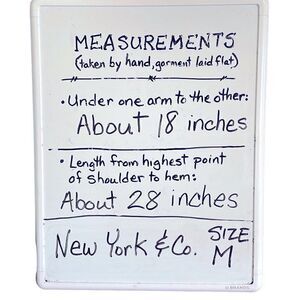 MEASUREMENTS
(taken by hand, garment laid flat)
• Under one arm to the other:
About 18 inches
• Length from highest point
of shoulder to hem:
About 28 inches
New York & Co. SIZE
M